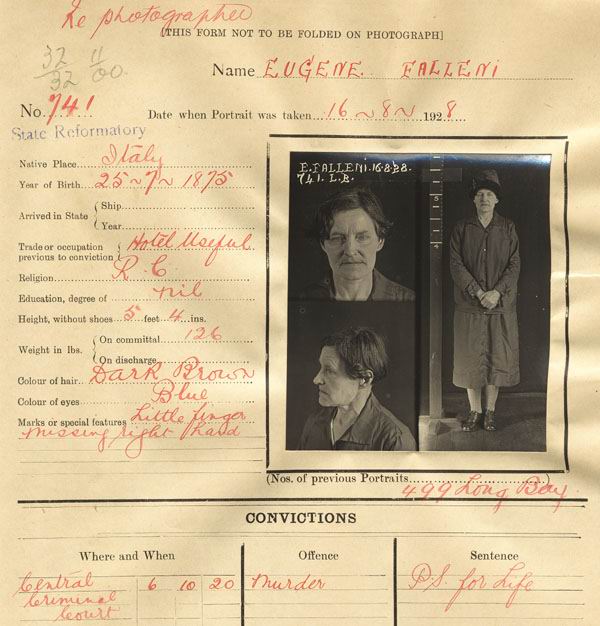 Re photographed
[THIS FORM NOT TO BE FOLDED ON PHOTOGRAPH]
32 11
32 00.
Name EUGENE FALLENI
No. 741 Date when Portrait was taken 16~8~1928
State Reformatory
Native Place Italy
Year of Birth 25~7~1875
Arrived in State { Ship
Year
Trade or occupation previous to conviction } Hotel Useful
Religion R C
Education, degree of nil
Height, without shoes 5 feet 4 ins.
Weight in lbs. { On committal 126
On discharge
Colour of hair Dark Brown
Colour of eyes Blue
Marks or special features Little finger
missing right hand
E.FALLENI.16.8.28.
741. L.B.
(Nos. of previous Portraits 499 Long Bay
CONVICTIONS
Where and When Offence Sentence
Central Criminal Court 6 10 20 Murder P.S. for Life